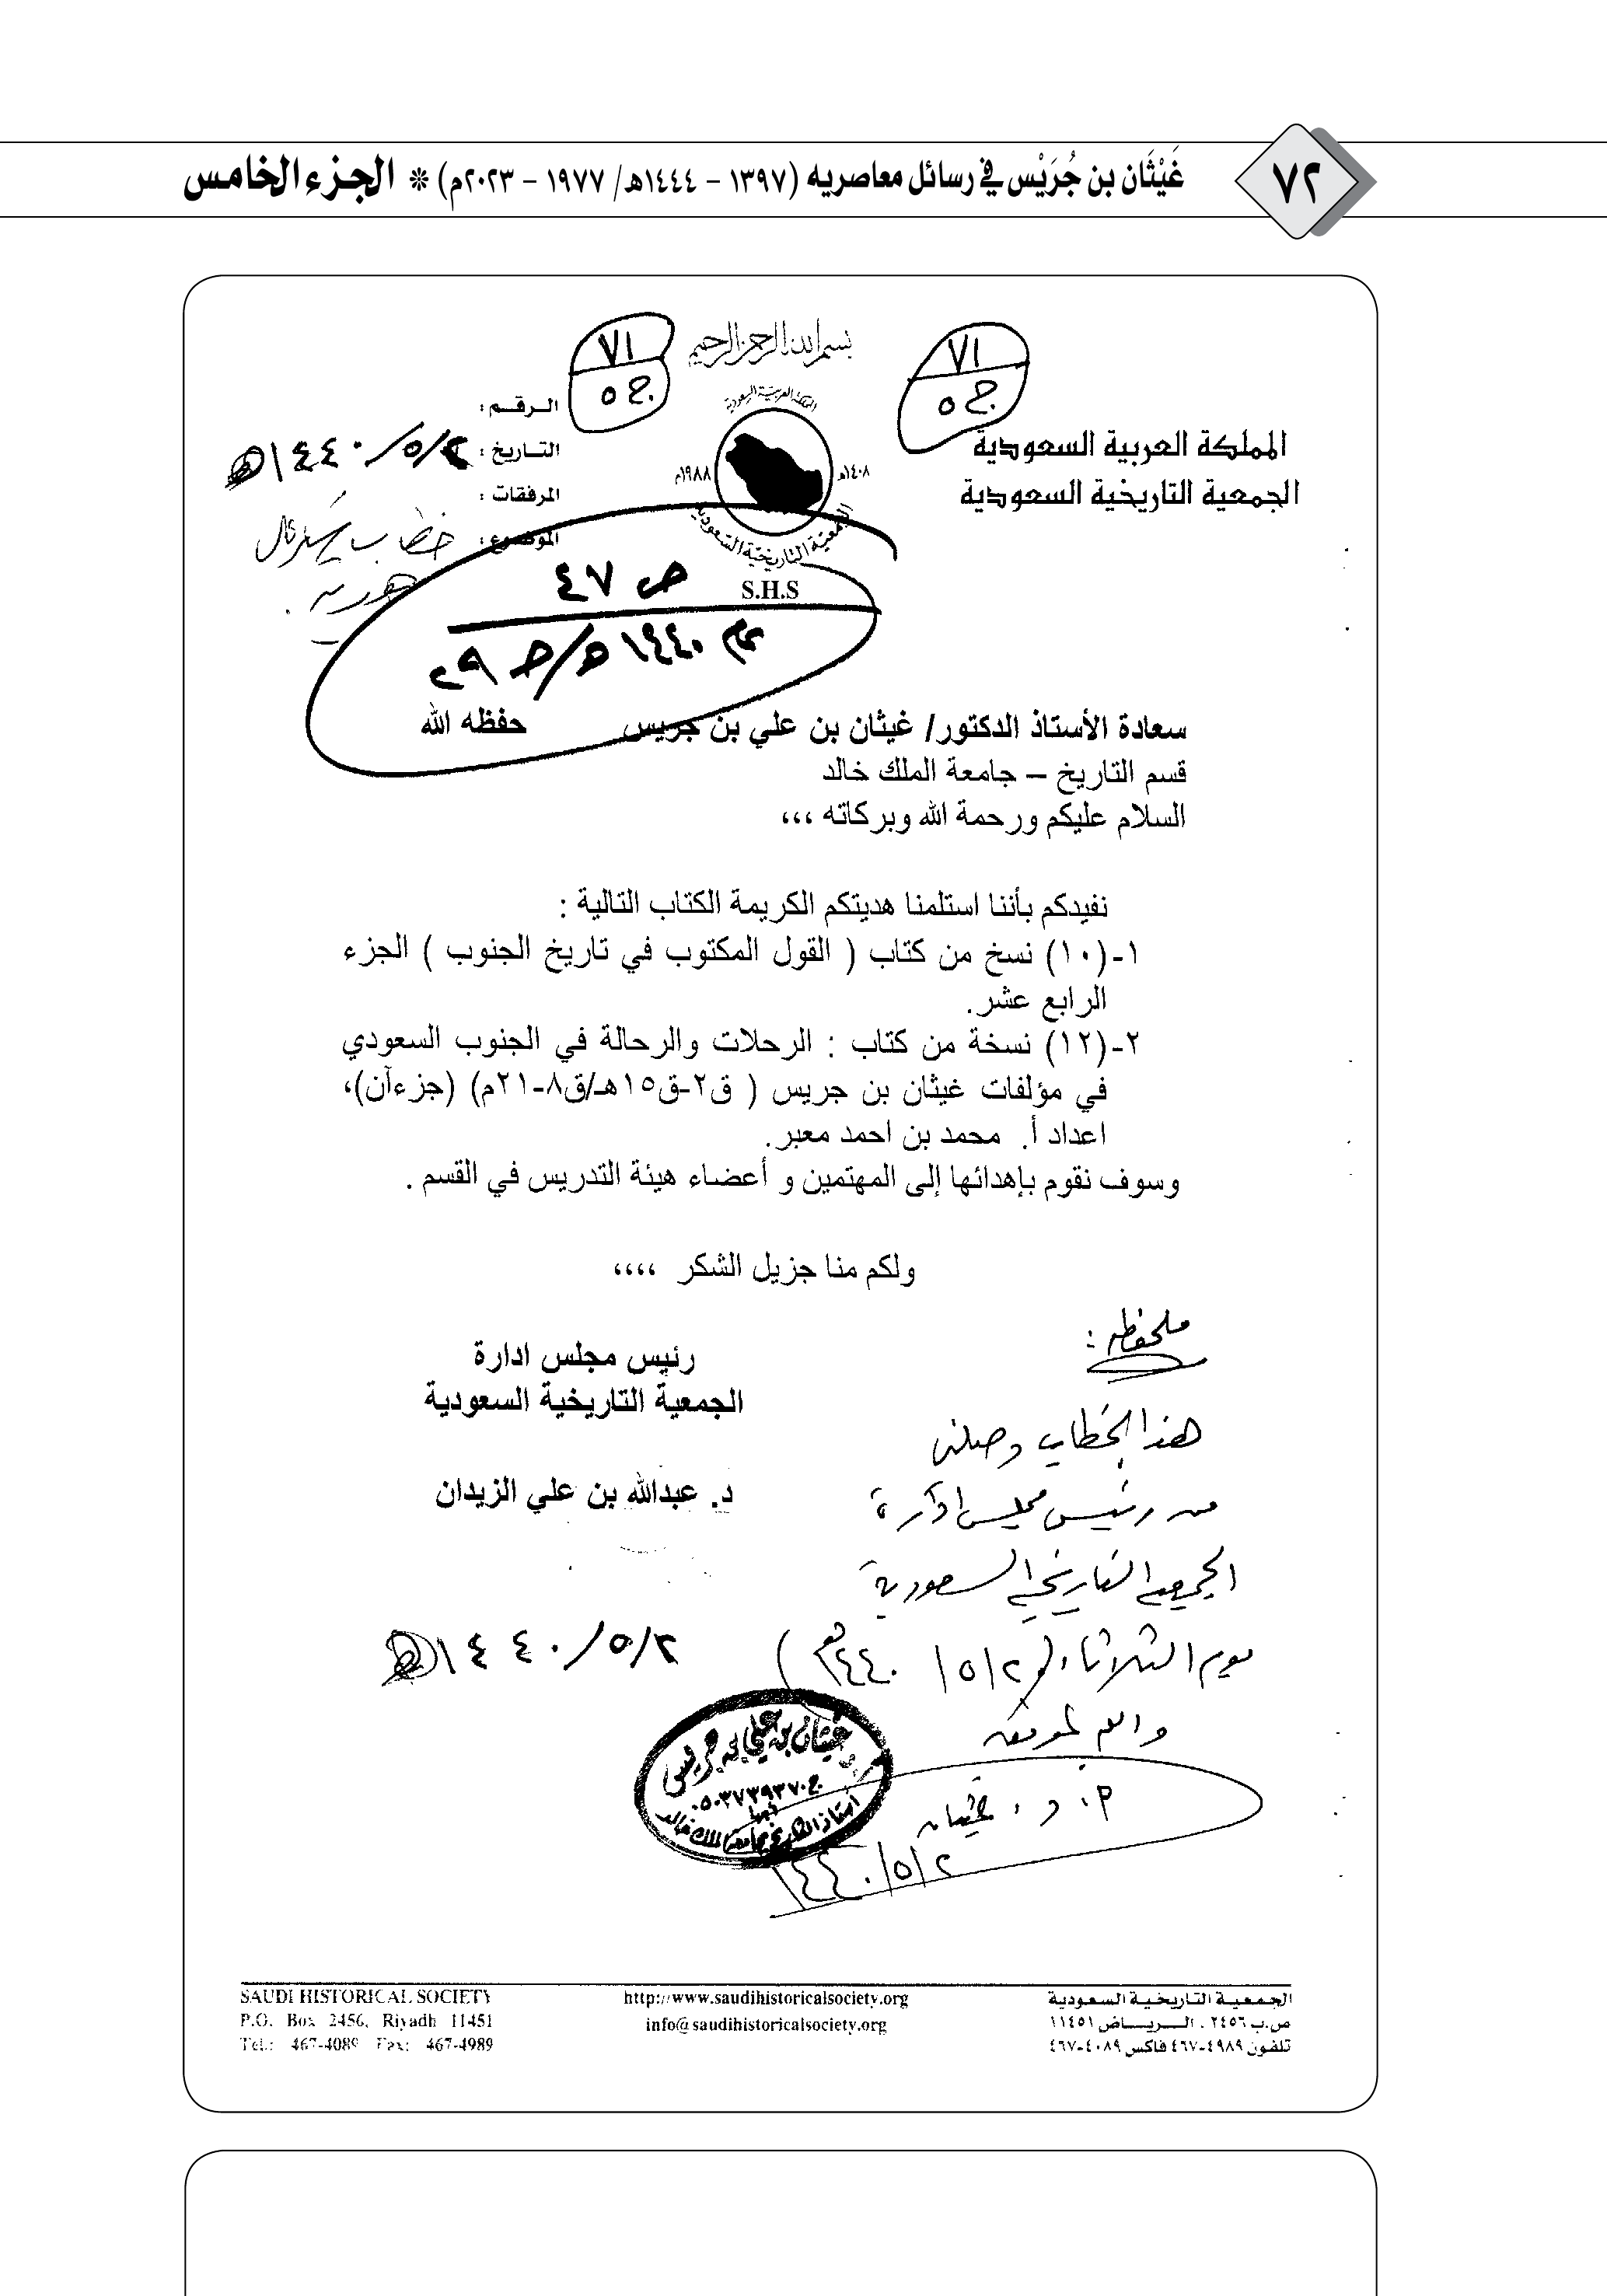 ٧٢
غَيْثَان بن جُرَيْس في رسائل معاصريه (١٣٩٧ - ١٤٤٤هـ/ ١٩٧٧ - ٢٠٢٣م) * الجزء الخامس
بسم الله الرحمن الرحيم
٧١
ج ٥
٧١
ج ٥
المملكة العربية السعودية
الجمعية التاريخية السعودية
المملكة العربية السعودية
١٤٠٨هـ
١٩٨٨م
الجمعية التاريخية السعودية
S.H.S
الرقم :
التاريخ : ١٤٤٠/٥/٢هـ
المرفقات :
الموضوع : خطاب
ص ٤٧
عام ١٤٤٠هـ/ جـ ٢٩
سعادة الأستاذ الدكتور/ غيثان بن علي بن جريس حفظه الله
قسم التاريخ – جامعة الملك خالد
السلام عليكم ورحمة الله وبركاته ،،،
نفيدكم بأننا استلمنا هديتكم الكريمة الكتاب التالية :
١-(١٠) نسخ من كتاب ( القول المكتوب في تاريخ الجنوب ) الجزء
الرابع عشر.
٢-(١٢) نسخة من كتاب : الرحلات والرحالة في الجنوب السعودي
في مؤلفات غيثان بن جريس ( ق٢-ق١٥هـ/ق٨-٢١م) (جزءآن)،
اعداد أ. محمد بن احمد معبر.
وسوف نقوم بإهدائها إلى المهتمين و أعضاء هيئة التدريس في القسم .
ولكم منا جزيل الشكر ،،،،
رئيس مجلس ادارة
الجمعية التاريخية السعودية
د. عبدالله بن علي الزيدان
١٤٤٠/٥/٢هـ
ملحوظه :
هذا الخطاب وصلني
من رئيس مجلس ادارة
الجمعية التاريخية السعودية
يوم الثلاثاء (١٤٤٠/٥/٢هـ)
والله الموفق
أ. د . غيثان
١٤٤٠/٥/٢
غيثان بن علي بن جريس
ج٠٥٠٣٧٣٩٣٧٠
أستاذ التاريخ بجامعة الملك خالد
أبها
SAUDI HISTORICAL SOCIETY
P.O. Box 2456, Riyadh 11451
Tel.: 467-4089 Fax: 467-4989
http://www.saudihistoricalsociety.org
info@saudihistoricalsociety.org
الجمعية التاريخية السعودية
ص.ب ٢٤٥٦ . الرياض ١١٤٥١
تلفون ٤٩٨٩-٤٦٧ فاكس ٤٠٨٩-٤٦٧